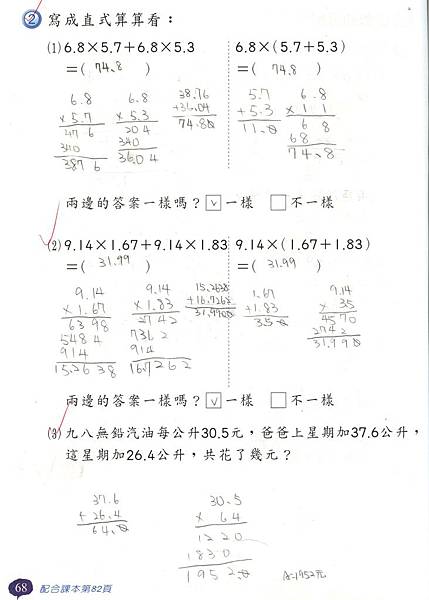 2 寫成直式算算看：
(1) 6.8×5.7+6.8×5.3
=( 74.8 )
6.8×(5.7+5.3)
=( 74.8 )
6.8
×5.7
47 6
340
38.7 6
6.8
×5.3
20 4
340
36.0 4
38.76
+36.04
74.80
5.7
+5.3
11.0
6.8
×1 1
6 8
68
74.8
兩邊的答案一樣嗎？ v 一樣 不一樣
(2) 9.14×1.67+9.14×1.83
=( 31.99 )
9.14×(1.67+1.83)
=( 31.99 )
9.14
×1.67
6398
5484
914
15.2638
9.14
×1.83
2742
7312
914
16.7262
15.2638
+16.7262
31.9900
1.67
+1.83
3.50
9.14
× 35
4570
2742
31.990
兩邊的答案一樣嗎？ v 一樣 不一樣
(3) 九八無鉛汽油每公升30.5元，爸爸上星期加37.6公升，
這星期加26.4公升，共花了幾元？
37.6
+26.4
64.0
30.5
× 64
1220
1830
1952.0
A:1952元
68 配合課本第82頁